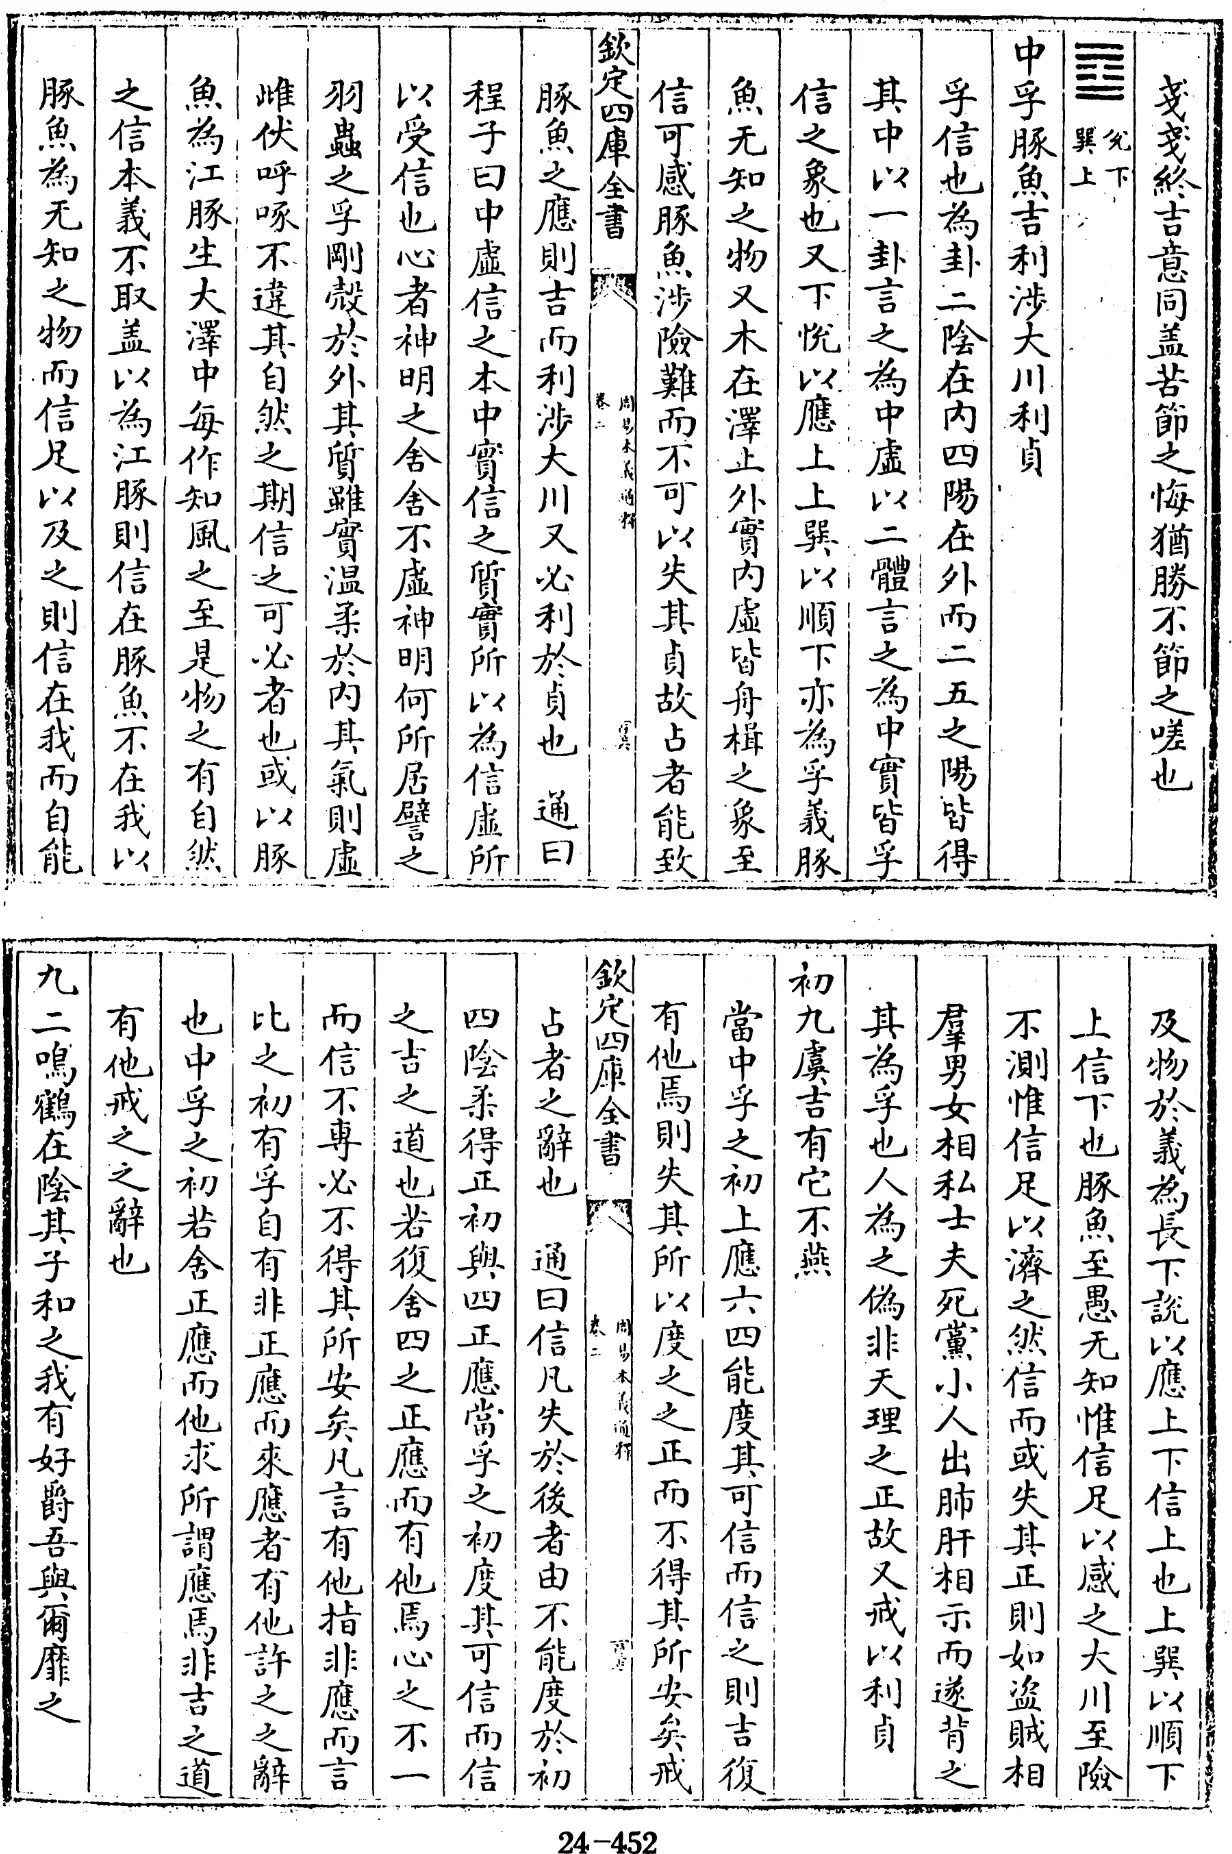 戔戔終吉意同盖苦節之悔猶勝不節之嗟也
兊下
巽上
中孚豚魚吉利涉大川利貞
孚信也為卦二陰在内四陽在外而二五之陽皆得
其中以一卦言之為中虛以二體言之為中實皆孚
信之象也又下悅以應上上巽以順下亦為孚義豚
魚无知之物又木在澤上外實内虛皆舟楫之象至
信可感豚魚涉險難而不可以失其貞故占者能致
欽定四庫全書
周易本義通釋
卷二
豚魚之應則吉而利涉大川又必利於貞也 通曰
程子曰中虛信之本中實信之質實所以為信虛所
以受信也心者神明之舍舍不虛神明何所居譬之
羽蟲之孚剛殼於外其質雖實温柔於内其氣則虛
雌伏呼啄不違其自然之期信之可必者也或以豚
魚為江豚生大澤中每作知風之至是物之有自然
之信本義不取盖以為江豚則信在豚魚不在我以
豚魚為无知之物而信足以及之則信在我而自能
及物於義為長下說以應上下信上也上巽以順下
上信下也豚魚至愚无知惟信足以感之大川至險
不測惟信足以濟之然信而或失其正則如盗賊相
羣男女相私士夫死黨小人出肺肝相示而遂背之
其為孚也人為之偽非天理之正故又戒以利貞
初九虞吉有它不燕
當中孚之初上應六四能度其可信而信之則吉復
有他焉則失其所以度之之正而不得其所安矣戒
欽定四庫全書
周易本義通釋
卷二
占者之辭也 通曰信凡失於後者由不能度於初
四陰柔得正初與四正應當孚之初度其可信而信
之吉之道也若復舍四之正應而有他焉心之不一
而信不專必不得其所安矣凡言有他指非應而言
比之初有孚自有非正應而來應者有他許之之辭
也中孚之初若舍正應而他求所謂應焉非吉之道
有他戒之之辭也
九二鳴鶴在陰其子和之我有好爵吾與爾靡之
24-452